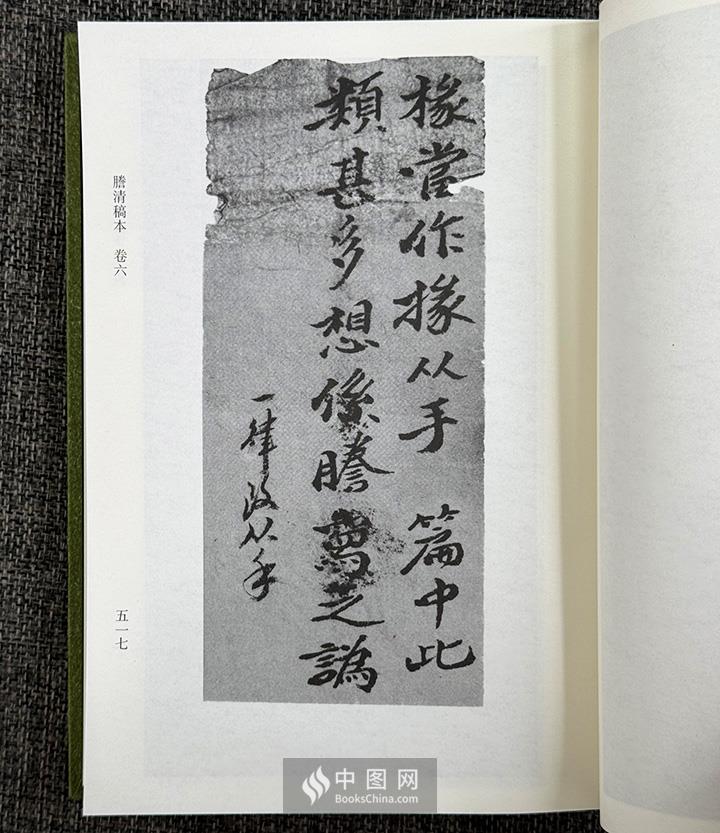 椽當作掾从手 篇中此
類甚多想係謄寫之譌
一律改从手
謄清稿本 卷六
五一七
中图网
BooksChina.com